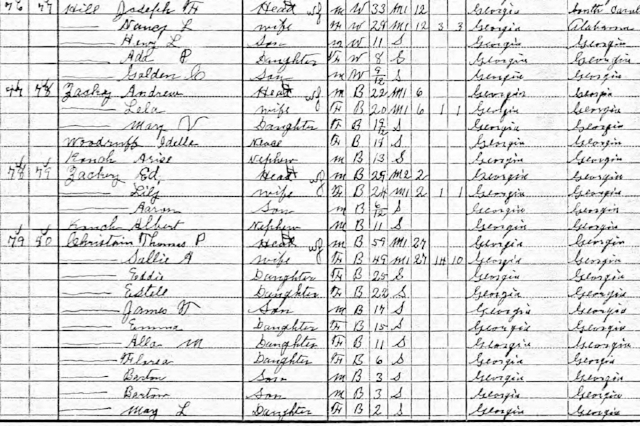 76 77 Hill Joseph H Head m W 33 M1 12 Georgia South
Nancy L wife W 29 M1 12 3 3 Georgia Alabama
Henry L Son m W 11 S Georgia Georgia
Ada P Daughter W 8 S Georgia Georgia
Golden C Son m W S Georgia Georgia
77 78 Zachry Andrew Head m B 22 M1 6 Georgia Georgia
Lela wife B 20 M1 6 1 1 Georgia Georgia
Mary V Daughter B S Georgia Georgia
Woodruff Idella Niece B S Georgia Georgia
Arise Nephew m B 13 S Georgia Georgia
78 79 Zachry Ed Head m B 29 M2 2 Georgia Georgia
Lily wife B 24 M1 2 1 1 Georgia Georgia
Aaron Son m B S Georgia Georgia
Albert Nephew m B 11 S Georgia Georgia
79 80 Christain Thomas P Head m B 59 M1 27 Georgia Georgia
Sallie A wife B 49 M1 27 14 10 Georgia Georgia
Eddie Daughter B 25 S Georgia Georgia
Estell Daughter B 22 S Georgia Georgia
James Son m B 17 S Georgia Georgia
Emma Daughter B 15 S Georgia Georgia
Alla M Daughter B 11 S Georgia Georgia
Daughter B 6 S Georgia Georgia
Barton Son m B 3 S Georgia Georgia
Bartow Son m B 3 S Georgia Georgia
May L Daughter B 2 S Georgia Georgia